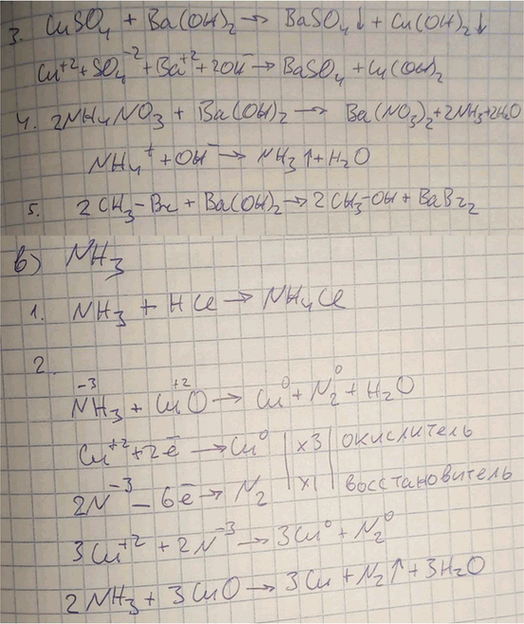 3. CuSO₄ + Ba(OH)₂ → BaSO₄↓ + Cu(OH)₂↓
Cu⁺² + SO₄⁻² + Ba⁺² + 2OH⁻ → BaSO₄ + Cu(OH)₂
4. 2NH₄NO₃ + Ba(OH)₂ → Ba(NO₃)₂ + 2NH₃ + 2H₂O
NH₄⁺ + OH⁻ → NH₃↑ + H₂O
5. 2CH₃-Br + Ba(OH)₂ → 2CH₃-OH + BaBr₂
в) NH₃
1. NH₃ + HCl → NH₄Cl
2.
N⁻³H₃ + Cu⁺²O → Cu⁰ + N₂⁰ + H₂O
Cu⁺² + 2e̅ → Cu⁰ | x3 | окислитель
2N⁻³ - 6e̅ → N₂ | x1 | восстановитель
3Cu⁺² + 2N⁻³ → 3Cu⁰ + N₂⁰
2NH₃ + 3CuO → 3Cu + N₂↑ + 3H₂O